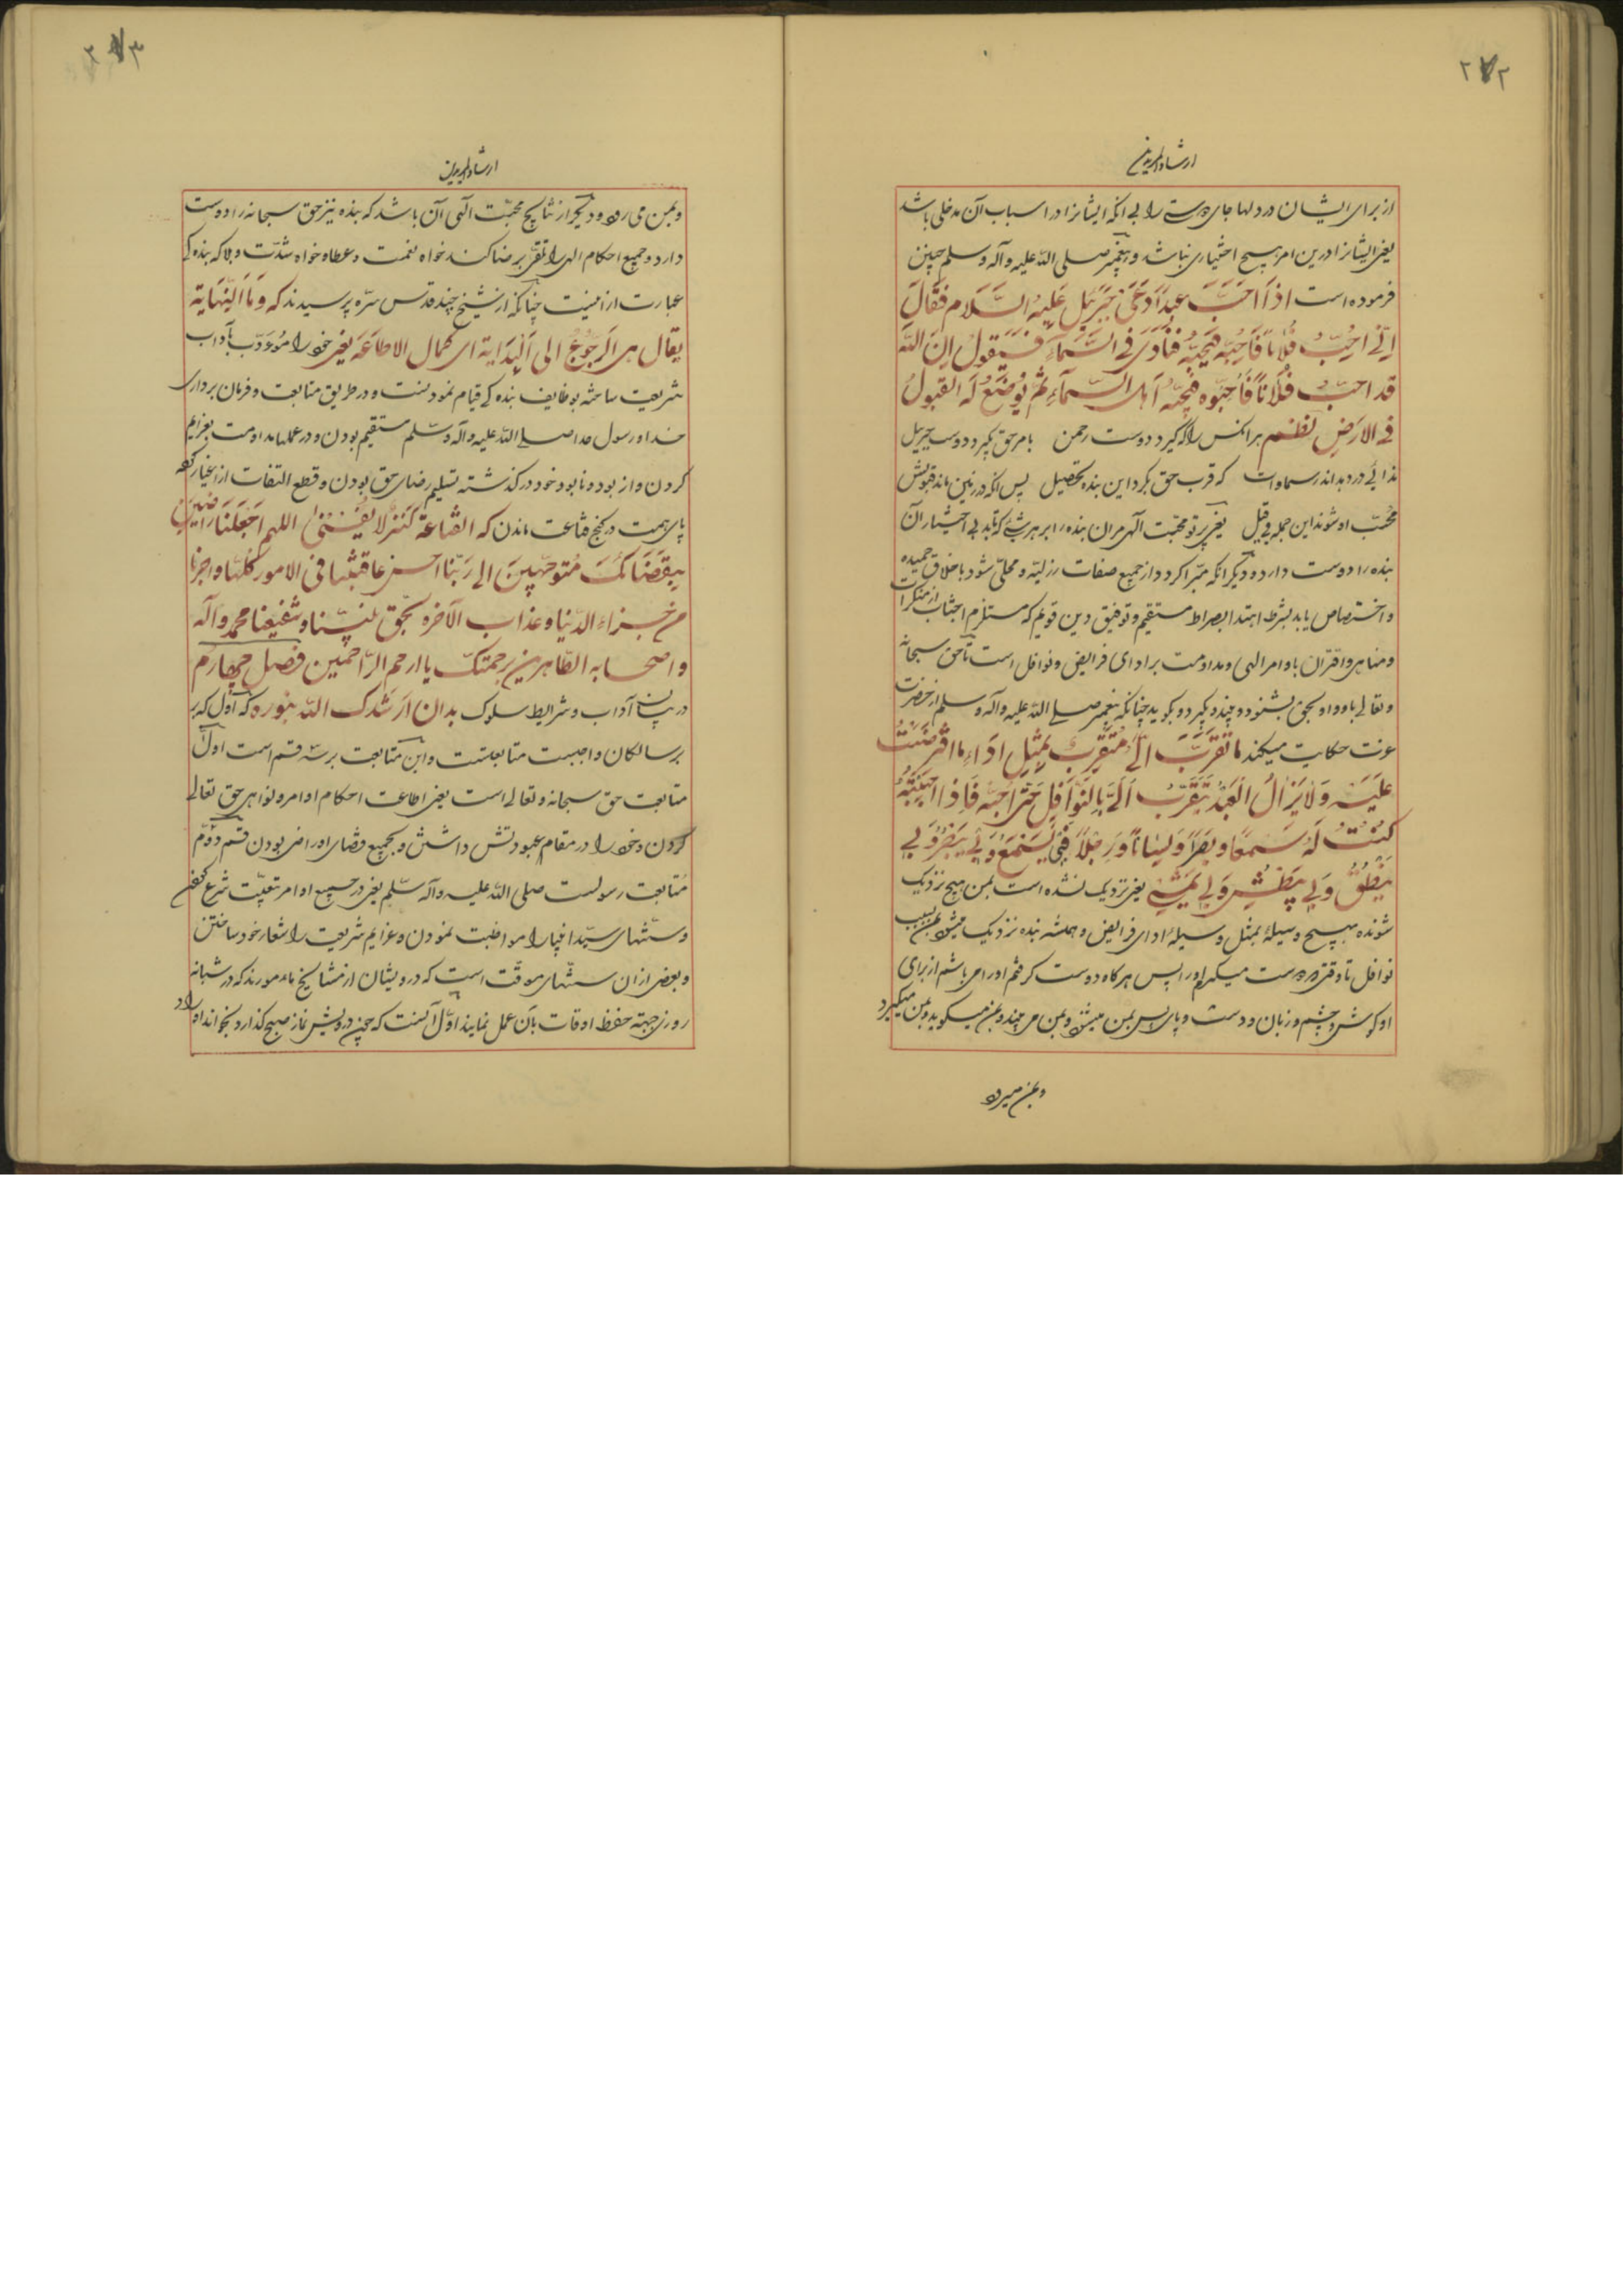 ۲۷۲
ارشاد المریدین
از برای ایشان در دلها جای دوستی را بی آنکه ایشانرا در اسباب آن مدخلی باشد
یعنی ایشانرا درین امر هیچ اختیاری نباشد و پیغمبر صلی الله علیه وآله وسلم چنین
فرموده است اذا احَبَّ عبداً دَعَیٰ جبرَئیل عَلَیهِ السَّلام فَقَالَ
اِنّی اُحِبُّ فُلاناً فَاَحِبَّه فیُحِبُّه فَیُنادی فی السَّمآء فَیَقولُ اِنَّ اللّه
قد احبَّ فُلاناً فَاَحِبُّوه فیُحِبُّه اَهلُ السّمآءِ ثُمَّ یُوضَعُ لَه القبولُ
فی الارضِ نظم هر آنکس را که گیرد دوست رحمن بامر حق بگیرد دوست جبریل
ندائی در دهد اندر سماوات که قرب حق بکرد این بنده تحصیل پس آنکه در زمین ماند قبولش
مُحبّ او شوند این جمله بی قیل یعنی پرتو محبّت آلهی مر آن بنده را بر هر شیٔ که تابد بی اختیار آن
بنده را دوست دارد و دیگر آنکه مبّرا کردد از جمیع صفات رزلیّه و محلّی شود باخلاق حمیده
و اختصاص یابد بشرط اهتدا بصراط مستقیم و توفیق دین قویم که مستلزم اجتناب از منکرات
و مناهی و اقتران باوامر الهی و مداومت بر ادای فرایض و نوافل است تا حق سبحانه
و تعالی با او و او بحق بشنود و بیند و بگیرد و بگوید چنانکه پیغمبر صلی الله علیه وآله وسلم از حضرت
عزت حکایت میکند ما تَقَرَّبَ اِلَیَّ مُتَقَرِّبٌ بِمِثلِ اَدَاءِ ما افتَرَضتُ
عَلَیهِ وَلایَزالُ العَبدُ یَتَقَرَّبُ اِلَیَّ بِالنَّوافِلِ حَتّی اُحِبَّه فَاِذا اَحبَبتُهُ
کُنتُ لَهُ سَمعاً و بَصَراً وَ لِساناً وَ یداً وَ رِجلاً فَبی یَسمَعُ وَبی یَبصُرُ وَبی
یَنطِقُ وَبی یَبطِشُ وَبی یَمشی یعنی نزدیک نشده است بمن هیچ نزدیک
شونده بهیچ وسیلهٔ بمثل وسیلهٔ ادای فرایض و همیشه بنده نزدیک میشود بمن بسبب
نوافل تا وقتی دوست میکیرم او را پس هرکاه دوست کرفتم او را می باشم از برای
او کوش و چشم و زبان و دست و پای پس بمن میشنود و بمن می بیند و بمن میکوید و بمن میکیرد
و بمن میرود
۲۷۳
ارشاد المریدین
و بمن می رود و دیگر از نتایج محبّت آلهی آن باشد که بنده نیز حق سبحانه را دوست
دارد و جمیع احکام الهی را تلقّی برضا کند خواه نعمت و عطا و خواه شدّت و بلا که بنده کی
عبارت از اینست چنانکه از شیخ جنید قدس سرّه پرسیدند که وَمَا النِّهَایة
یقال هی الرُجُوعُ الی البِدَایة ای کمال الاطاعَة یعنی خود را مؤدّب بآداب
شریعت ساخته بوظایف بنده کی قیام نمودنست و در طریق متابعت و فرمان برداری
خدا و رسول خدا صلی الله علیه وآله وسلم مستقیم بودن و در عملها مداومت بعزایم
کردن و از بود و نابود خود در کذشته تسلیم رضای حق بودن و قطع التفات از اغیار کرده
پای همت در کنج قناعت ماندن که القناعة کنز لا یُفنیٰ اللهم اجعَلنا راضینَ
بِقَضَائِکَ مُتوجّهینَ الی رَبّنا احسن عاقبتنا فی الامور کلّها و اجرنا
من خزاء الدّنیا و عذاب الآخره بحَقّ نبیّنا و شفیعنا محمد و آله
و اصحابه الطّاهرین برحمتک یا ارحم الرّاحمین فصل چهارم
در بیان آداب و شرایط سلوک بدان ارشدک الله بنوره که اوّل که بر
بر سالکان واجبست متابعتست و این متابعت بر سه قسم است اولا
متابعت حق سبحانه و تعالی است یعنی اطاعت احکام اوامر و نواهی حق تعالی
کردن و خود را در مقام عبودتش داشتن و بجمیع قضای او راضی بودن قسم دوّم
مُتابعت رسولست صلی الله علیه وآله سلّم یعنی در جمیع اوامر تبعیّت شرع
و سنّتهای سیّد انبیا را مواظبت نمودن و عزایم شریعت را شعار خود ساختن
و بعضی از ان سنتهای موقّت است که درویشان از مشایخ مامورند که در شبانه
روزی جهته حفظ اوقات بآن عمل نمایند اوّل آنست که چون درویش نماز صبح کذارد